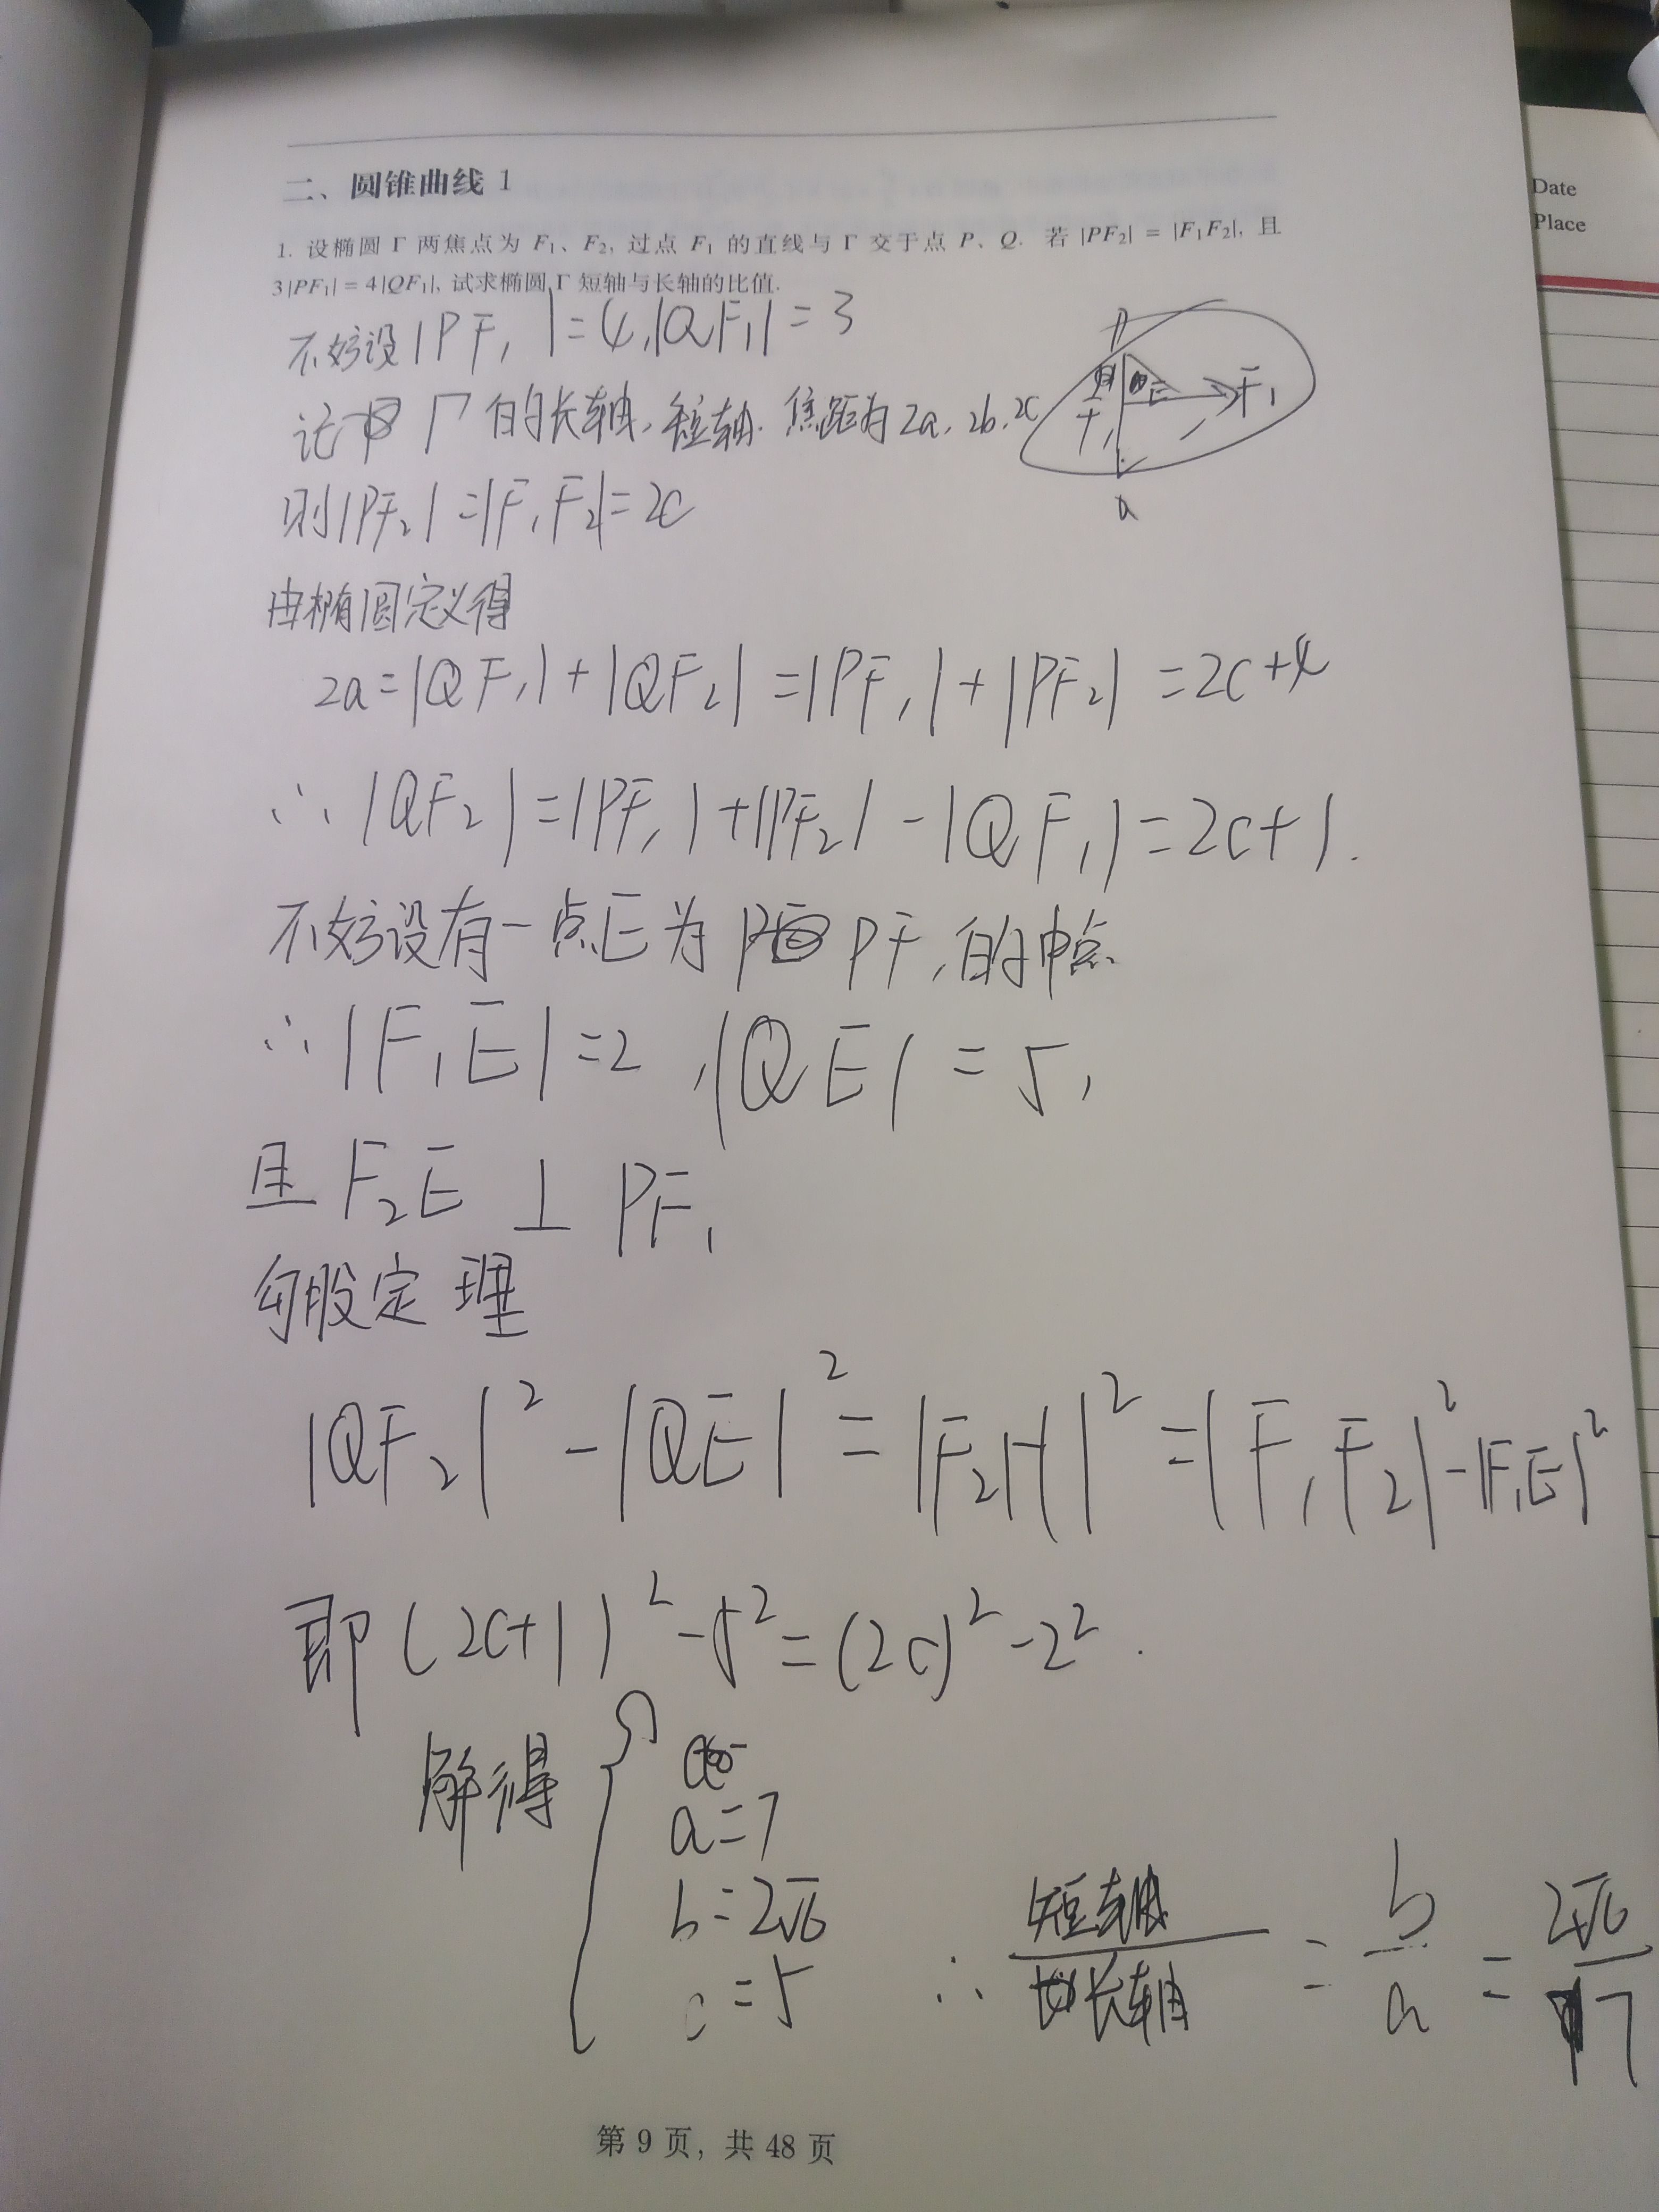 Date
Place
二、圆锥曲线 1
1. 设椭圆 Γ 两焦点为 F₁、F₂, 过点 F₁ 的直线与 Γ 交于点 P、Q. 若 |PF₂| = |F₁F₂|, 且
3|PF₁| = 4|QF₁|, 试求椭圆 Γ 短轴与长轴的比值.
不妨设|PF₁|=4,|QF₁|=3
记 Γ 的长轴、短轴、焦距为2a、2b、2c
则|PF₂|=|F₁F₂|=2c
由椭圆定义得
2a=|QF₁|+|QF₂|=|PF₁|+|PF₂|=2c+4
∴|QF₂|=|PF₁|+|PF₂|-|QF₁|=2c+1.
不妨设有一点E为 PF₁的中点
∴|F₁E|=2,|QE|=5,
且F₂E⊥PF₁
勾股定理
|QF₂|²-|QE|²=|F₂H|²=|F₁F₂|²-|F₁E|²
即(2c+1)²-5²=(2c)²-2².
解得
a=7
b=2√6
c=5
∴ 短轴/长轴 = b/a = 2√6/7
P
E
F₁
F₁
Q
第 9 页, 共 48 页